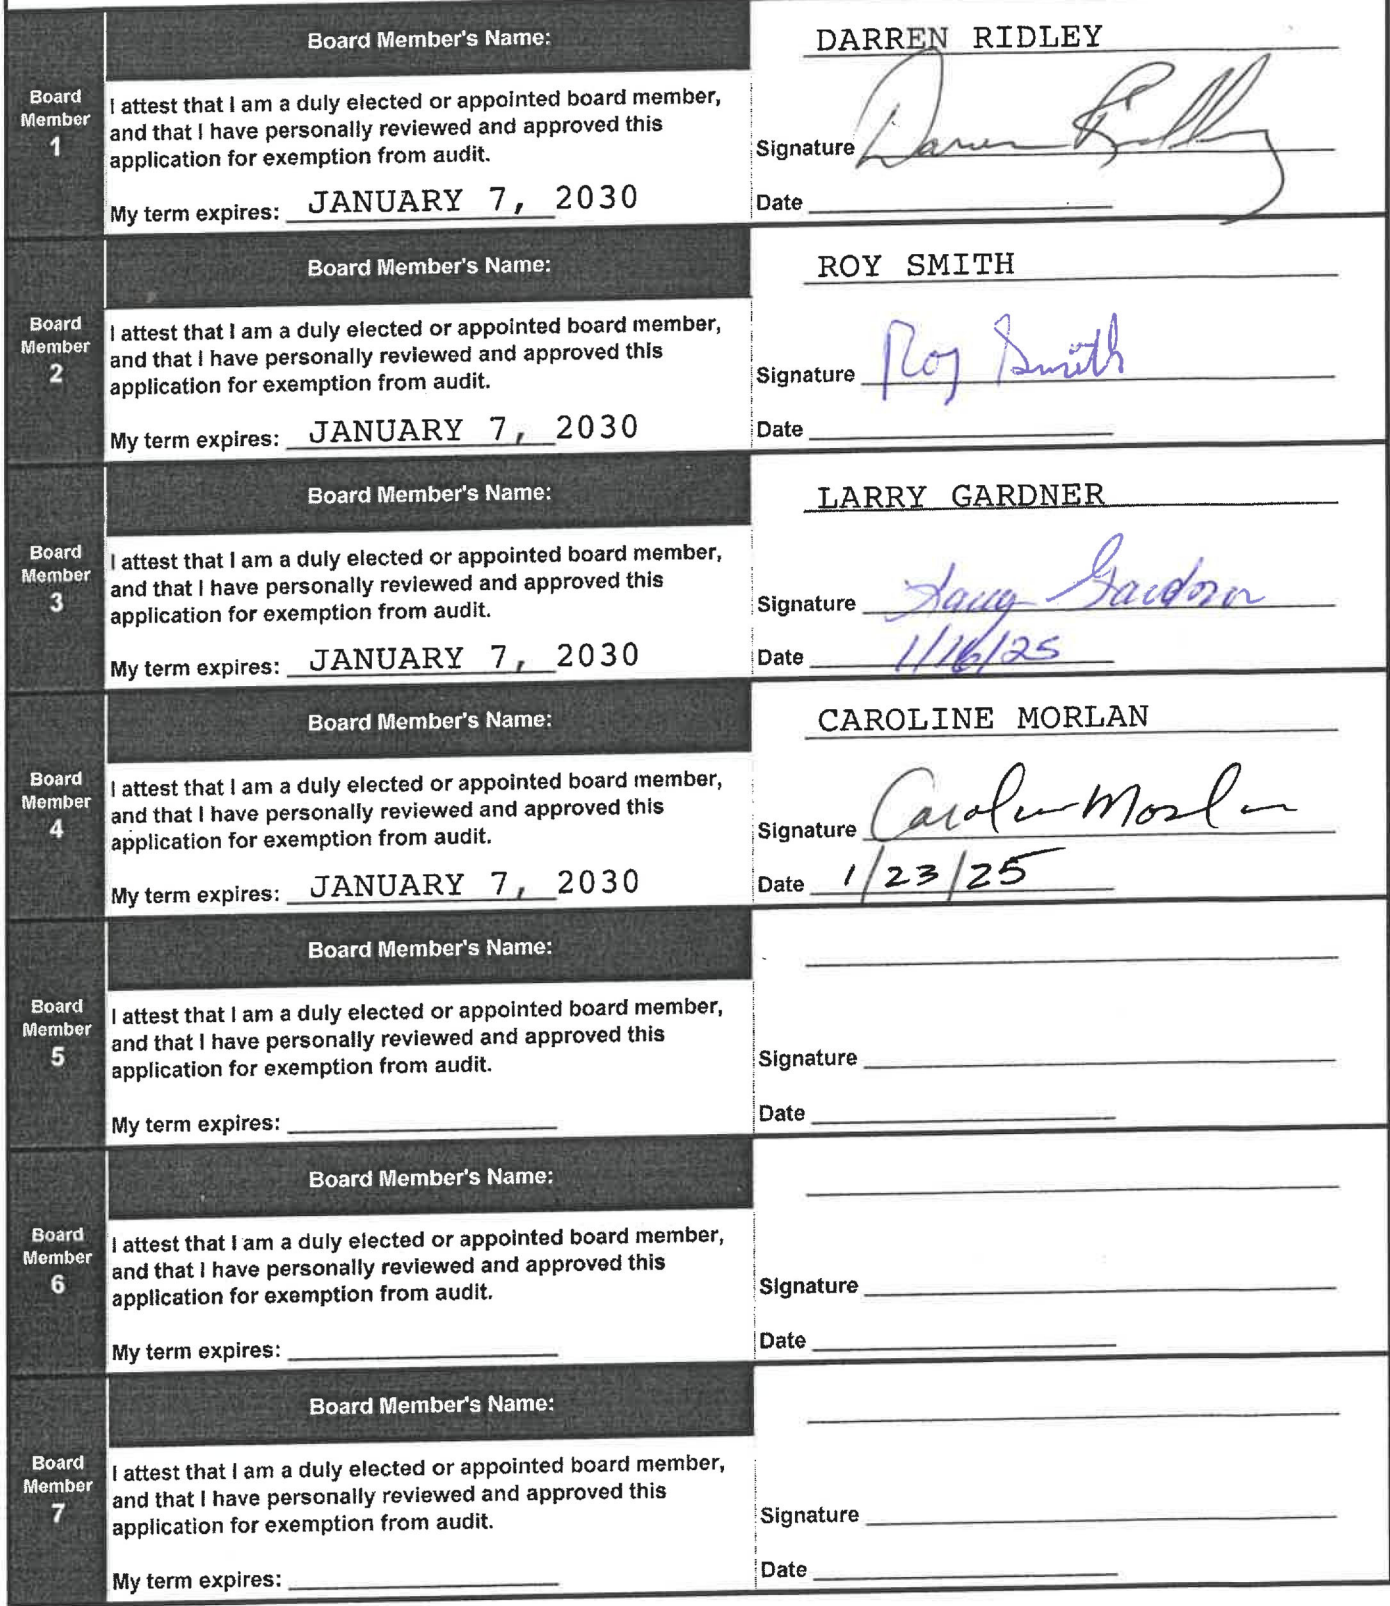 Board Member's Name:
DARREN RIDLEY
Board
Member
1
I attest that I am a duly elected or appointed board member,
and that I have personally reviewed and approved this
application for exemption from audit.
My term expires: JANUARY 7, 2030
Signature Darren Ridley
Date
Board Member's Name:
ROY SMITH
Board
Member
2
I attest that I am a duly elected or appointed board member,
and that I have personally reviewed and approved this
application for exemption from audit.
My term expires: JANUARY 7, 2030
Signature Roy Smith
Date
Board Member's Name:
LARRY GARDNER
Board
Member
3
I attest that I am a duly elected or appointed board member,
and that I have personally reviewed and approved this
application for exemption from audit.
My term expires: JANUARY 7, 2030
Signature Larry Gardner
Date 1/16/25
Board Member's Name:
CAROLINE MORLAN
Board
Member
4
I attest that I am a duly elected or appointed board member,
and that I have personally reviewed and approved this
application for exemption from audit.
My term expires: JANUARY 7, 2030
Signature Caroline Morlan
Date 1/23/25
Board Member's Name:
Board
Member
5
I attest that I am a duly elected or appointed board member,
and that I have personally reviewed and approved this
application for exemption from audit.
My term expires:
Signature
Date
Board Member's Name:
Board
Member
6
I attest that I am a duly elected or appointed board member,
and that I have personally reviewed and approved this
application for exemption from audit.
My term expires:
Signature
Date
Board Member's Name:
Board
Member
7
I attest that I am a duly elected or appointed board member,
and that I have personally reviewed and approved this
application for exemption from audit.
My term expires:
Signature
Date